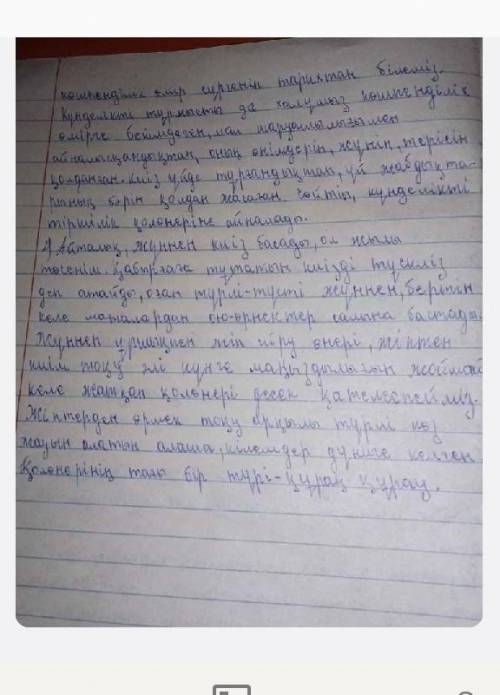 көшпенділік өмір сүргенін тарихтан білеміз.
Күнделікті тұрмысты да халқымыз көшпенділік
өмірге бейімдеген, мал шаруашылығымен
айналысқандықтан, оның өнімдерін, жүнін, терісін
қолданған. Киіз үйде тұрғандықтан, үй жабдықта-
рының бәрін қолдан жасаған. Сөйтіп, күнделікті
тіршілік қолөнеріне айналады.
Айталық, жүннен киіз басады, ол жылы
төсеніш. Қабырғаға тұтатын киізді тускиіз
деп атайды, оған түрлі-түсті жүннен, беріпін
келе маталардан ою-өрнектер салына бастады.
Жүннен ұршықпен жіп иіру өнері, жіптен
киім тоқу әлі күнге маңыздылығын жоймай
келе жатқан қолөнері десек қателеспейміз.
Жіптерден өрмек тоқу арқылы түрлі көз
жауын алатын алаша, кілемдер дүниге келген
Қолөнерінің тағы бір түрі-құрақ құрау.